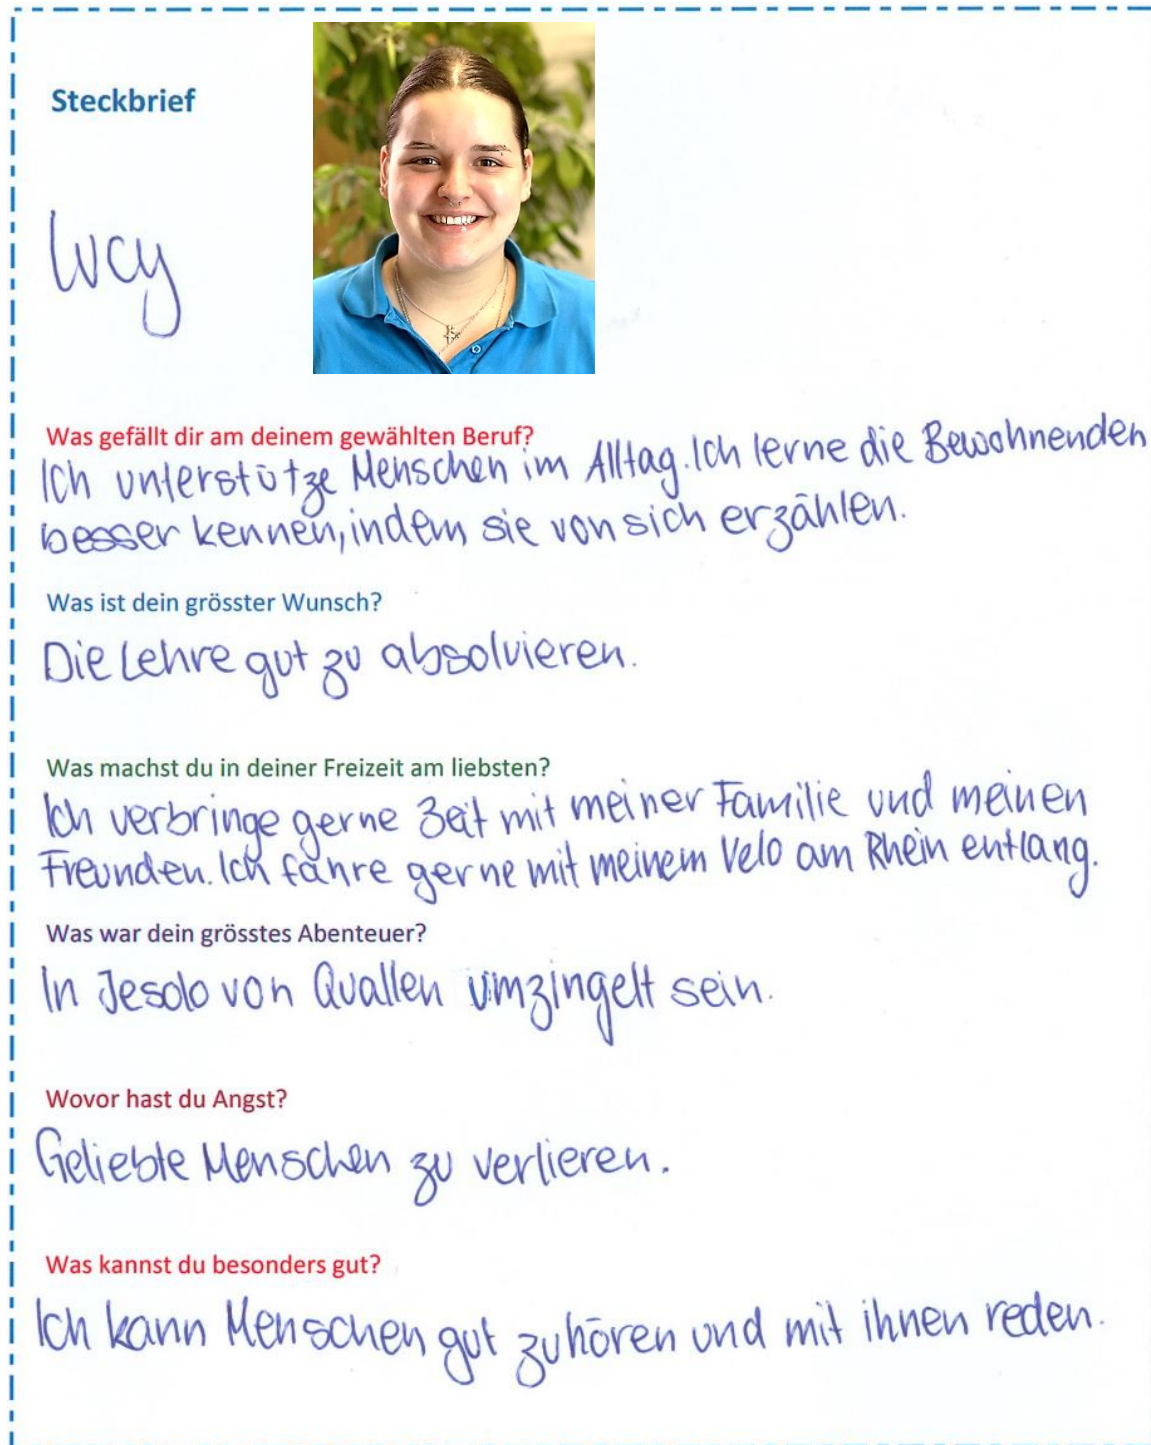 Steckbrief
Lucy
Was gefällt dir am deinem gewählten Beruf?
Ich unterstütze Menschen im Alltag. Ich lerne die Bewohnenden
besser kennen, indem sie von sich erzählen.
Was ist dein grösster Wunsch?
Die Lehre gut zu absolvieren.
Was machst du in deiner Freizeit am liebsten?
Ich verbringe gerne Zeit mit meiner Familie und meinen
Freunden. Ich fahre gerne mit meinem Velo am Rhein entlang.
Was war dein grösstes Abenteuer?
In Jesolo von Quallen umzingelt sein.
Wovor hast du Angst?
Geliebte Menschen zu verlieren.
Was kannst du besonders gut?
Ich kann Menschen gut zuhören und mit ihnen reden.